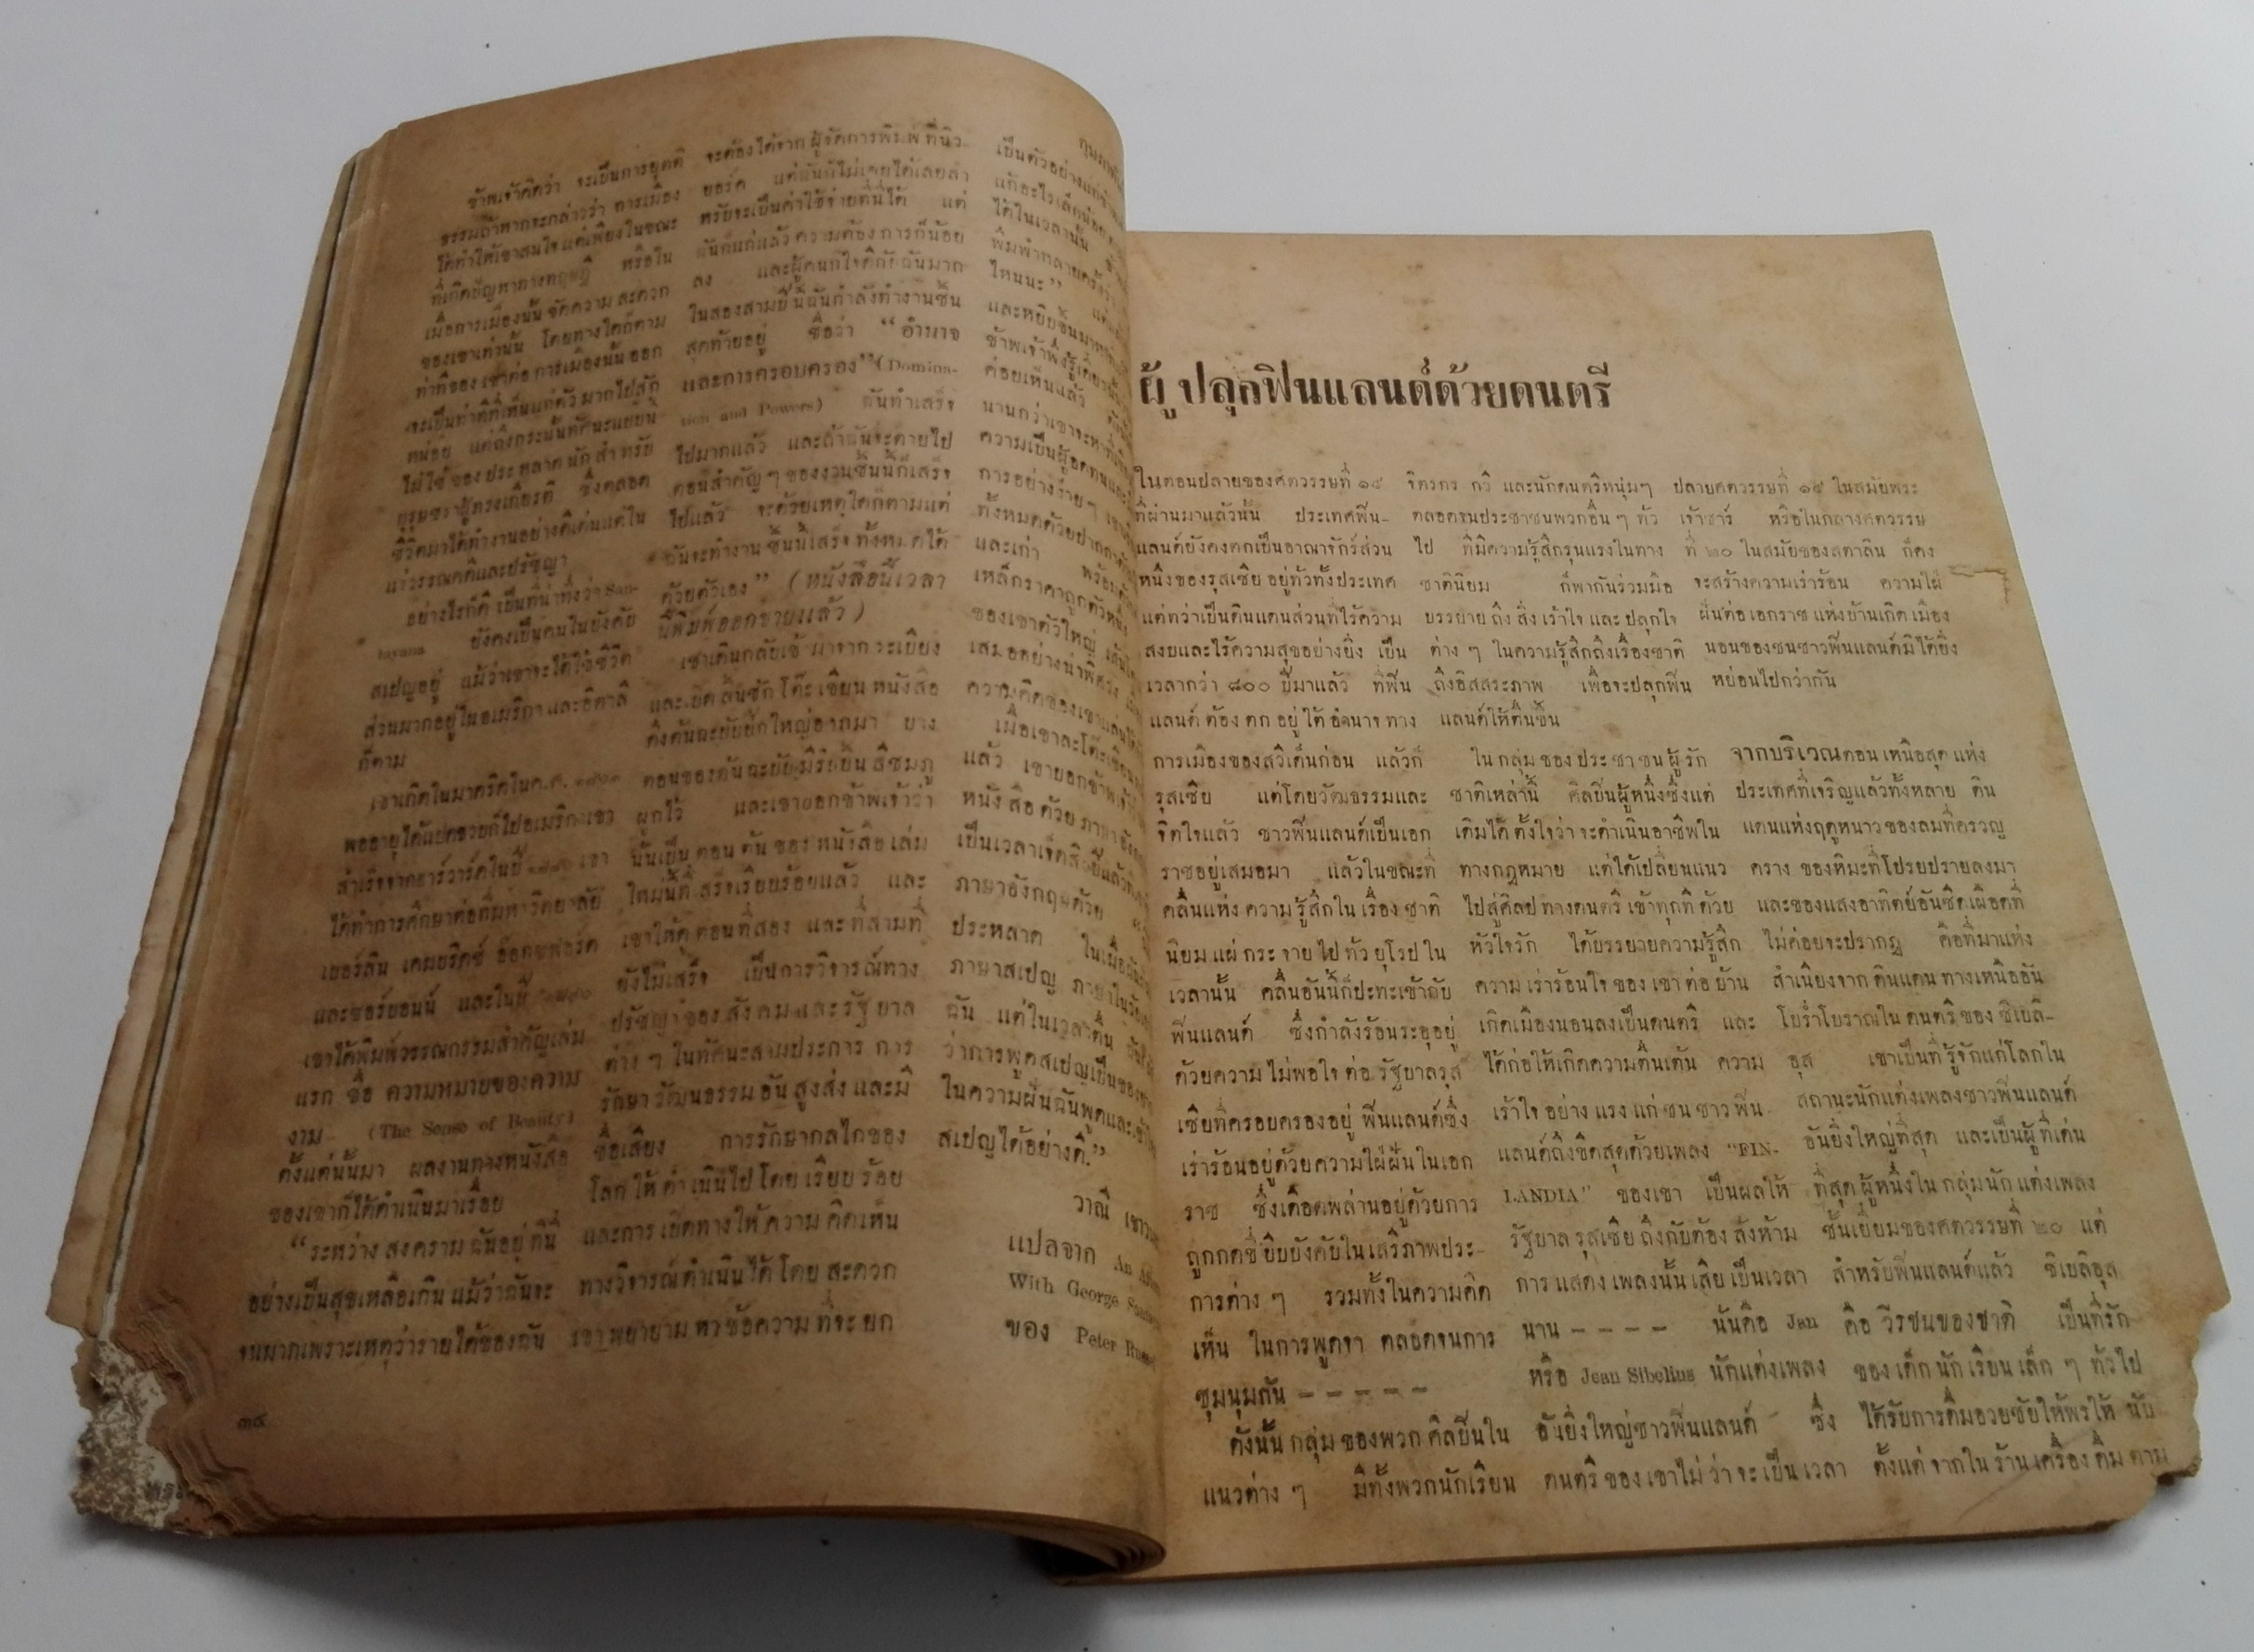 ข้าพเจ้าคิดว่า จะเป็นการยุตติ
ธรรมถ้าหากจะกล่าวว่า การเมือง
ได้ทำให้เขาสนใจแต่เพียงในขณะ
ที่เกิดปัญหาทางทฤษฎี หรือใน
เมื่อการเมืองนั้นขัดความสะดวก
ของเขาเท่านั้น โดยทางใดก็ตาม
ท่าทีของเขาต่อการเมืองนั้นออก
จะเป็นท่าทีที่เห็นแก่ตัวมากไปสัก
หน่อย แต่ถึงกระนั้นทัศนะแบบนี้
ไม่ใช่ของประหลาดนักสำหรับ
บุรุษชราผู้ทรงเกียรติ ซึ่งตลอด
ชีวิตมาได้ทำงานอย่างดีเด่นแต่ใน
แง่วรรณคดีและปรัชญา
อย่างไรก็ดี เป็นที่น่าทึ่งว่า San-
tayana ยังคงเป็นคนในบังคับ
สเปญอยู่ แม้ว่าเขาจะได้ใช้ชีวิต
ส่วนมากอยู่ในอเมริกาและอิตาลี
ก็ตาม
เขาเกิดในมาดริดในค.ศ.
พออายุได้แปดขวบก็ไปอเมริกา เขา
สำเร็จจากฮาร์วาร์ดในปี เขา
ได้ทำการศึกษาต่อที่มหาวิทยาลัย
เบอร์ลิน เคมบริดช์ อ๊อกซฟอร์ด
และซอร์บอนน์ และในปี
เขาได้พิมพ์วรรณกรรมสำคัญเล่ม
แรก ชื่อ ความหมายของความ
งาม (The Sense of Beauty)
ตั้งแต่นั้นมา ผลงานทางหนังสือ
ของเขาก็ได้ดำเนินมาเรื่อย
“ระหว่างสงคราม ฉันอยู่ที่นี่
อย่างเป็นสุขเหลือเกิน แม้ว่าฉันจะ
จนมากเพราะเหตุว่ารายได้ของฉัน
๓๔
จะต้องได้จากผู้จัดการพิมพ์ที่นิว
ยอร์ค แต่ฉันก็ไม่เคยได้เลยสำ
หรับจะเป็นค่าใช้จ่ายที่นี่ได้ แต่
ฉันก็แก่แล้ว ความต้องการก็น้อย
ลง และผู้คนก็ใจดีกับฉันมาก
ในสองสามปีนี้ฉันกำลังทำงานชิ้น
สุดท้ายอยู่ ชื่อว่า “อำนาจ
และการครอบครอง” (Domina-
tion and Powers) ฉันทำเสร็จ
ไปมากแล้ว และถ้าฉันจะตายไป
ตอนสำคัญๆ ของงานชิ้นนี้ก็เสร็จ
ไปแล้ว จะด้วยเหตุใดก็ตามแต่
ฉันจะทำงานชิ้นนี้เสร็จทั้งหมดได้
ด้วยตัวเอง” (หนังสือนี้เวลา
นี้พิมพ์ออกขายแล้ว)
เขาเดินกลับเข้ามาจากระเบียง
และเปิดลิ้นชักโต๊ะเขียนหนังสือ
ดึงต้นฉะบับปึกใหญ่ออกมา บาง
ตอนของต้นฉะบับมีริบบิ้นสีชมภู
ผูกไว้ และเขาบอกข้าพเจ้าว่า
นั้นเป็นตอนต้นของหนังสือเล่ม
ใหม่นี้ที่เสร็จเรียบร้อยแล้ว และ
เขาให้ดูตอนที่สอง และที่สามที่
ยังไม่เสร็จ เป็นการวิจารณ์ทาง
ปรัชญาของสังคมและรัฐบาล
ต่าง ๆ ในทัศนะสามประการ การ
รักษาวัฒนธรรมอันสูงส่งและมี
ชื่อเสียง การรักษากลไกของ
โลกให้ดำเนินไปโดยเรียบร้อย
และการเปิดทางให้ความคิดเห็น
ทางวิจารณ์ดำเนินได้โดยสะดวก
เขาพยายามหาข้อความที่จะยก
เป็นตัวอย่างแก่ข้าพเจ้า
ได้ในเวลานั้น
ไหนนะ”
ค่อยเห็นแล้ว
นานกว่าเขาจะหา
ความเป็นผู้อดทนและ
การอย่างง่ายๆ
ทั้งหมดด้วยปากกา
และเก่า
เหล็กราคาถูกตัวหนึ่ง
ของเขาตัวใหญ่
เสมออย่างน่าพิศวง
ความคิดของเขา
เมื่อเขาละโต๊ะเขียน
แล้ว เขาบอกข้าพเจ้า
หนังสือด้วยภาษาอังกฤษ
เป็นเวลาเจ็ดสิบปีแล้ว
ภาษาอังกฤษด้วย
ประหลาด ในเมื่อ
ภาษาสเปญ ภาษาใน
ฉัน แต่ในเวลาตื่น
ว่าการพูดสเปญเป็นของ
ในความฝันฉันพูดและ
สเปญได้อย่างดี.”
วาณี
แปลจาก An
With George
ของ Peter
ผู้ปลุกฟินแลนด์ด้วยดนตรี
ในตอนปลายของศตวรรษที่ ๑๙
ที่ผ่านมาแล้วนั้น ประเทศฟิน-
แลนด์ยังคงตกเป็นอาณาจักร์ส่วน
หนึ่งของรุสเซีย อยู่ทั่วทั้งประเทศ
แต่ทว่าเป็นดินแดนส่วนที่ไร้ความ
สงบและไร้ความสุขอย่างยิ่ง เป็น
เวลากว่า ๘๐๐ ปีมาแล้ว ที่ฟิน
แลนด์ ต้อง ตก อยู่ ใต้ อำนาจ ทาง
การเมืองของสวิเด็นก่อน แล้วก็
รุสเซีย แต่โดยวัฒธรรมและ
จิตใจแล้ว ชาวฟินแลนด์เป็นเอก
ราชอยู่เสมอมา แล้วในขณะที่
คลื่นแห่งความรู้สึกในเรื่องชาติ
นิยมแผ่กระจายไปทั่วยุโรปใน
เวลานั้น คลื่นอันนี้ก็ปะทะเข้ากับ
ฟินแลนด์ ซึ่งกำลังร้อนระอุอยู่
ด้วยความไม่พอใจต่อรัฐบาลรุส
เซียที่ครอบครองอยู่ ฟินแลนด์ซึ่ง
เร่าร้อนอยู่ด้วยความใฝ่ฝันในเอก
ราช ซึ่งเดือดพล่านอยู่ด้วยการ
ถูกกดขี่บีบบังคับในเสรีภาพประ-
การต่าง ๆ รวมทั้งในความคิด
เห็น ในการพูดจา ตลอดจนการ
ชุมนุมกัน – – – – –
ดังนั้น กลุ่มของพวกศิลปินใน
แนวต่าง ๆ มีทั้งพวกนักเรียน
จิตรกร กวี และนักดนตรีหนุ่มๆ
ตลอดจนประชาชนพวกอื่น ๆ ทั่ว
ไป ที่มีความรู้สึกรุนแรงในทาง
ชาตินิยม ก็พากันร่วมมือ
บรรยาย ถึง สิ่ง เร้าใจ และ ปลุกใจ
ต่าง ๆ ในความรู้สึกถึงเรื่องชาติ
ถึงอิสสระภาพ เพื่อจะปลุกฟิน
แลนด์ให้ตื่นขึ้น
ในกลุ่มของประชาชนผู้รัก
ชาติเหล่านี้ ศิลปินผู้หนึ่งซึ่งแต่
เดิมได้ตั้งใจว่าจะดำเนินอาชีพใน
ทางกฎหมาย แต่ได้เปลี่ยนแนว
ไปสู่ศิลปทางดนตรี เข้าทุกทีด้วย
หัวใจรัก ได้บรรยายความรู้สึก
ความเร่าร้อนใจของเขาต่อบ้าน
เกิดเมืองนอนลงเป็นดนตรี และ
ได้ก่อให้เกิดความตื่นเต้น ความ
เร้าใจอย่างแรงแก่ชนชาวฟิน-
แลนด์ถึงขีดสุดด้วยเพลง “FIN-
LANDIA” ของเขา เป็นผลให้
รัฐบาลรุสเซียถึงกับต้องสั่งห้าม
การแสดงเพลงนั้นเสียเป็นเวลา
นาน – – – – นั่นคือ Jan
หรือ Jean Sibelius นักแต่งเพลง
อันยิ่งใหญ่ชาวฟินแลนด์ ซึ่ง
ดนตรีของเขาไม่ว่าจะเป็นเวลา
ปลายศตวรรษที่ ๑๙ ในสมัยพระ
เจ้าซาร์ หรือในกลางศตวรรษ
ที่ ๒๐ ในสมัยของสตาลิน ก็คง
จะสร้างความเร่าร้อน ความใฝ่
ฝันต่อเอกราชแห่งบ้านเกิดเมือง
นอนของชนชาวฟินแลนด์มิได้ยิ่ง
หย่อนไปกว่ากัน
จากบริเวณตอนเหนือสุดแห่ง
ประเทศที่เจริญแล้วทั้งหลาย ดิน
แดนแห่งฤดูหนาวของลมที่ครวญ
คราง ของหิมะที่โปรยปรายลงมา
และของแสงอาทิตย์อันซีดเผือดที่
ไม่ค่อยจะปรากฏ คือที่มาแห่ง
สำเนียงจากดินแดนทางเหนืออัน
โบร่ำโบราณในดนตรีของซิเบลิ-
อุส เขาเป็นที่รู้จักแก่โลกใน
สถานะนักแต่งเพลงชาวฟินแลนด์
อันยิ่งใหญ่ที่สุด และเป็นผู้ที่เด่น
ที่สุดผู้หนึ่งในกลุ่มนักแต่งเพลง
ชั้นเยี่ยมของศตวรรษที่ ๒๐ แต่
สำหรับฟินแลนด์แล้ว ซิเบลิอุส
คือ วีรชนของชาติ เป็นที่รัก
ของเด็กนักเรียนเล็ก ๆ ทั่วไป
ได้รับการดื่มอวยชัยให้พรให้ นับ
ตั้งแต่จากในร้านเครื่องดื่มตาม